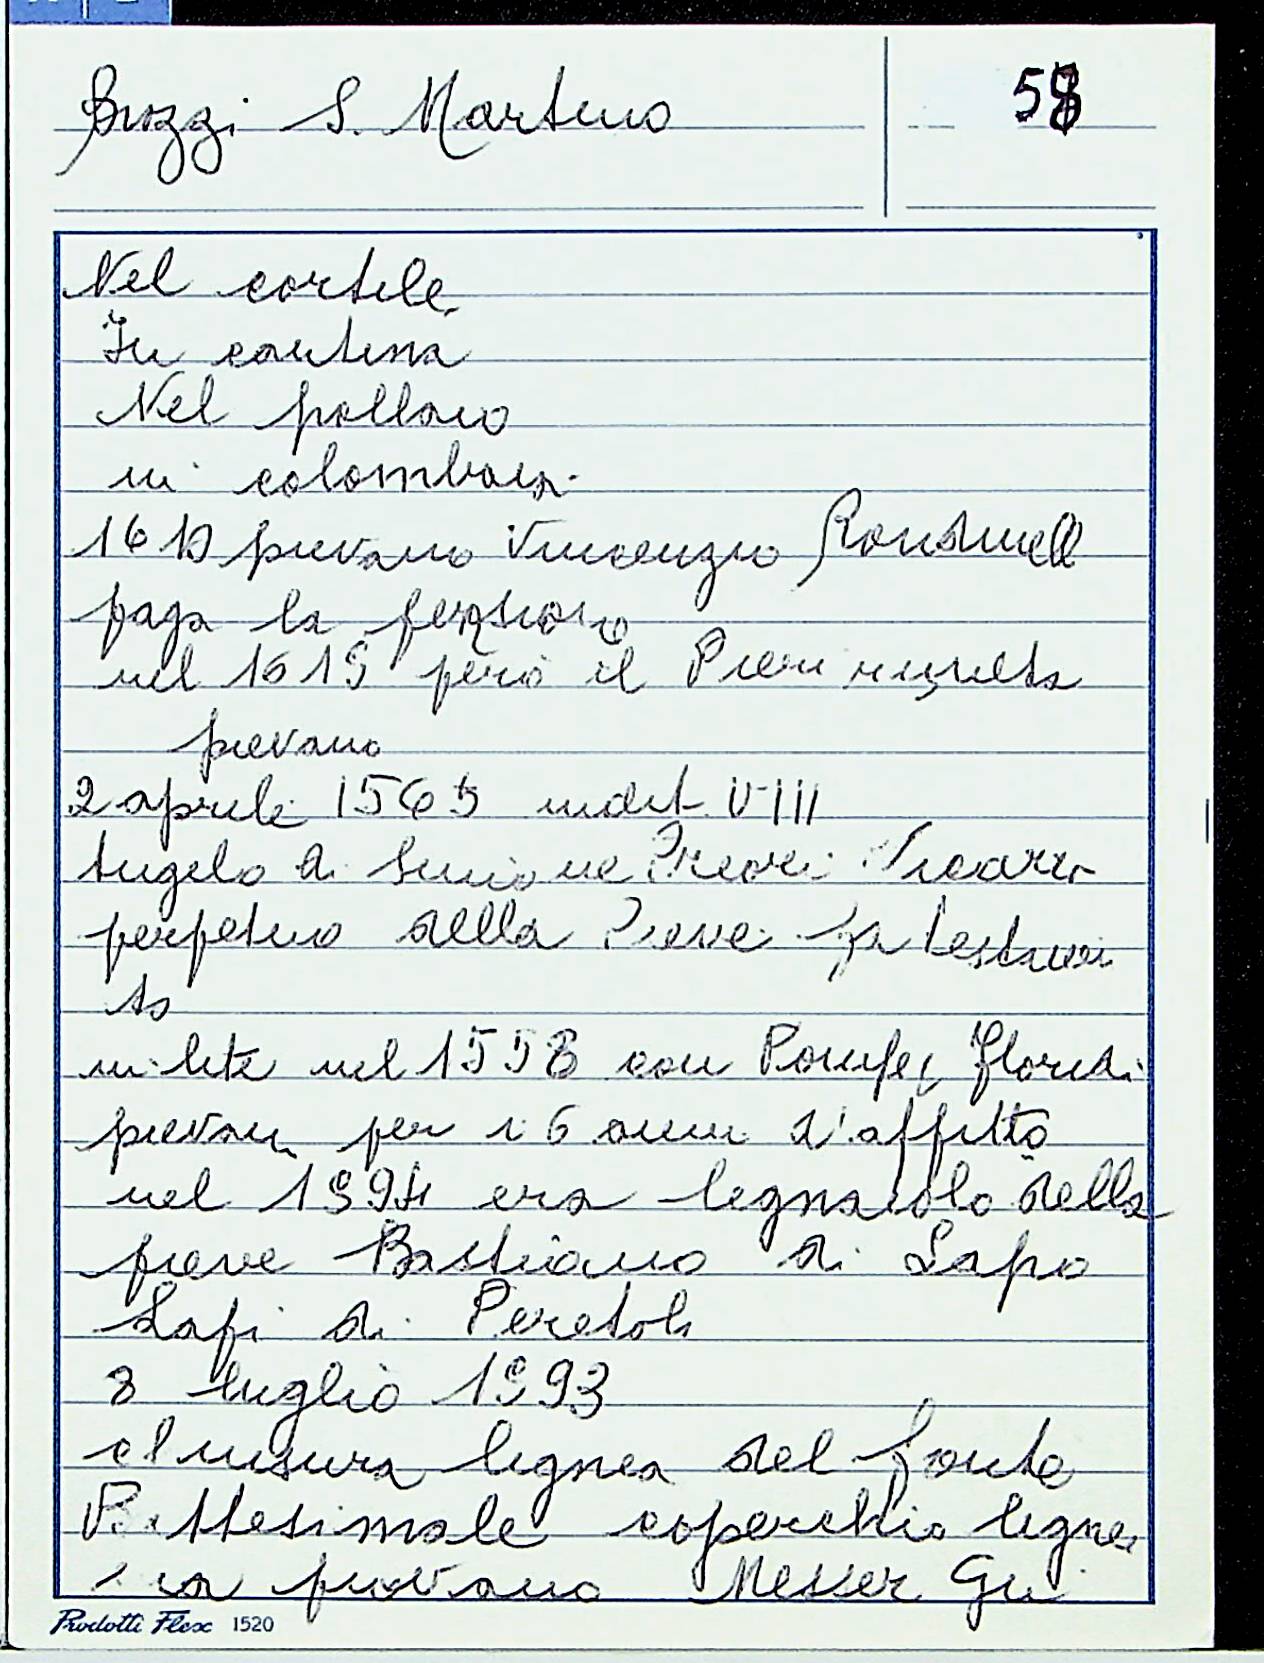 Brozzi S. Martino
58
Nel cortile
In cantina
Nel pollaio
in colombaia
1610 pievano Vincenzio
paga la pensione
nel 1615 però il Pieri risulta
pievano
2 aprile 1565 indit VIII
Angelo di Simone Pieori Vicario
perpetuo della Pieve fa
to
in lite nel 1558 con Pompeo Floridi
pievan per i 6 anni d'affitto
nel 1594 era legnaiolo della
pieve Bastiano di Lapo
Lapi di Peretola
8 luglio 1593
chiusura lignea del fonte
Battesimale coperchio ligneo
era pievano Messer Gu
Prodotti Flex 1520